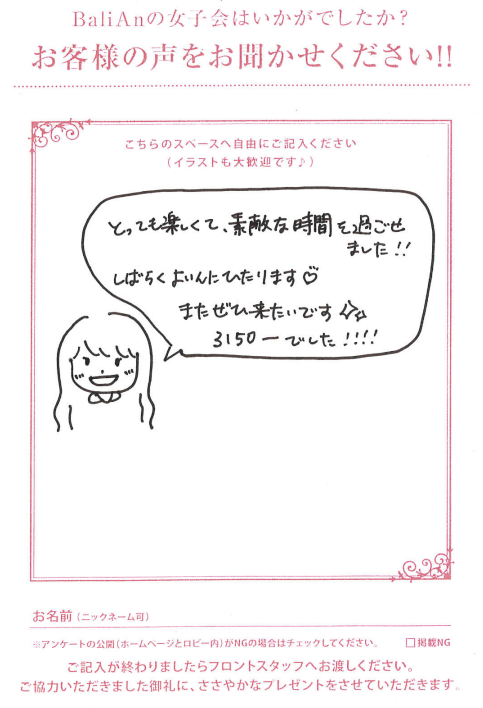 BaliAnの女子会はいかがでしたか？
お客様の声をお聞かせください!!
こちらのスペースへ自由にご記入ください
（イラストも大歓迎です♪）
とっても楽しくて、素敵な時間を過ごせ
ました!!
しばらくよいんにひたります♡
またぜひ来たいです☆☆
3150ーでした!!!!
お名前（ニックネーム可）
※アンケートの公開（ホームページとロビー内）がNGの場合はチェックしてください。 □掲載NG
ご記入が終わりましたらフロントスタッフへお渡しください。
ご協力いただきました御礼に、ささやかなプレゼントをさせていただきます。